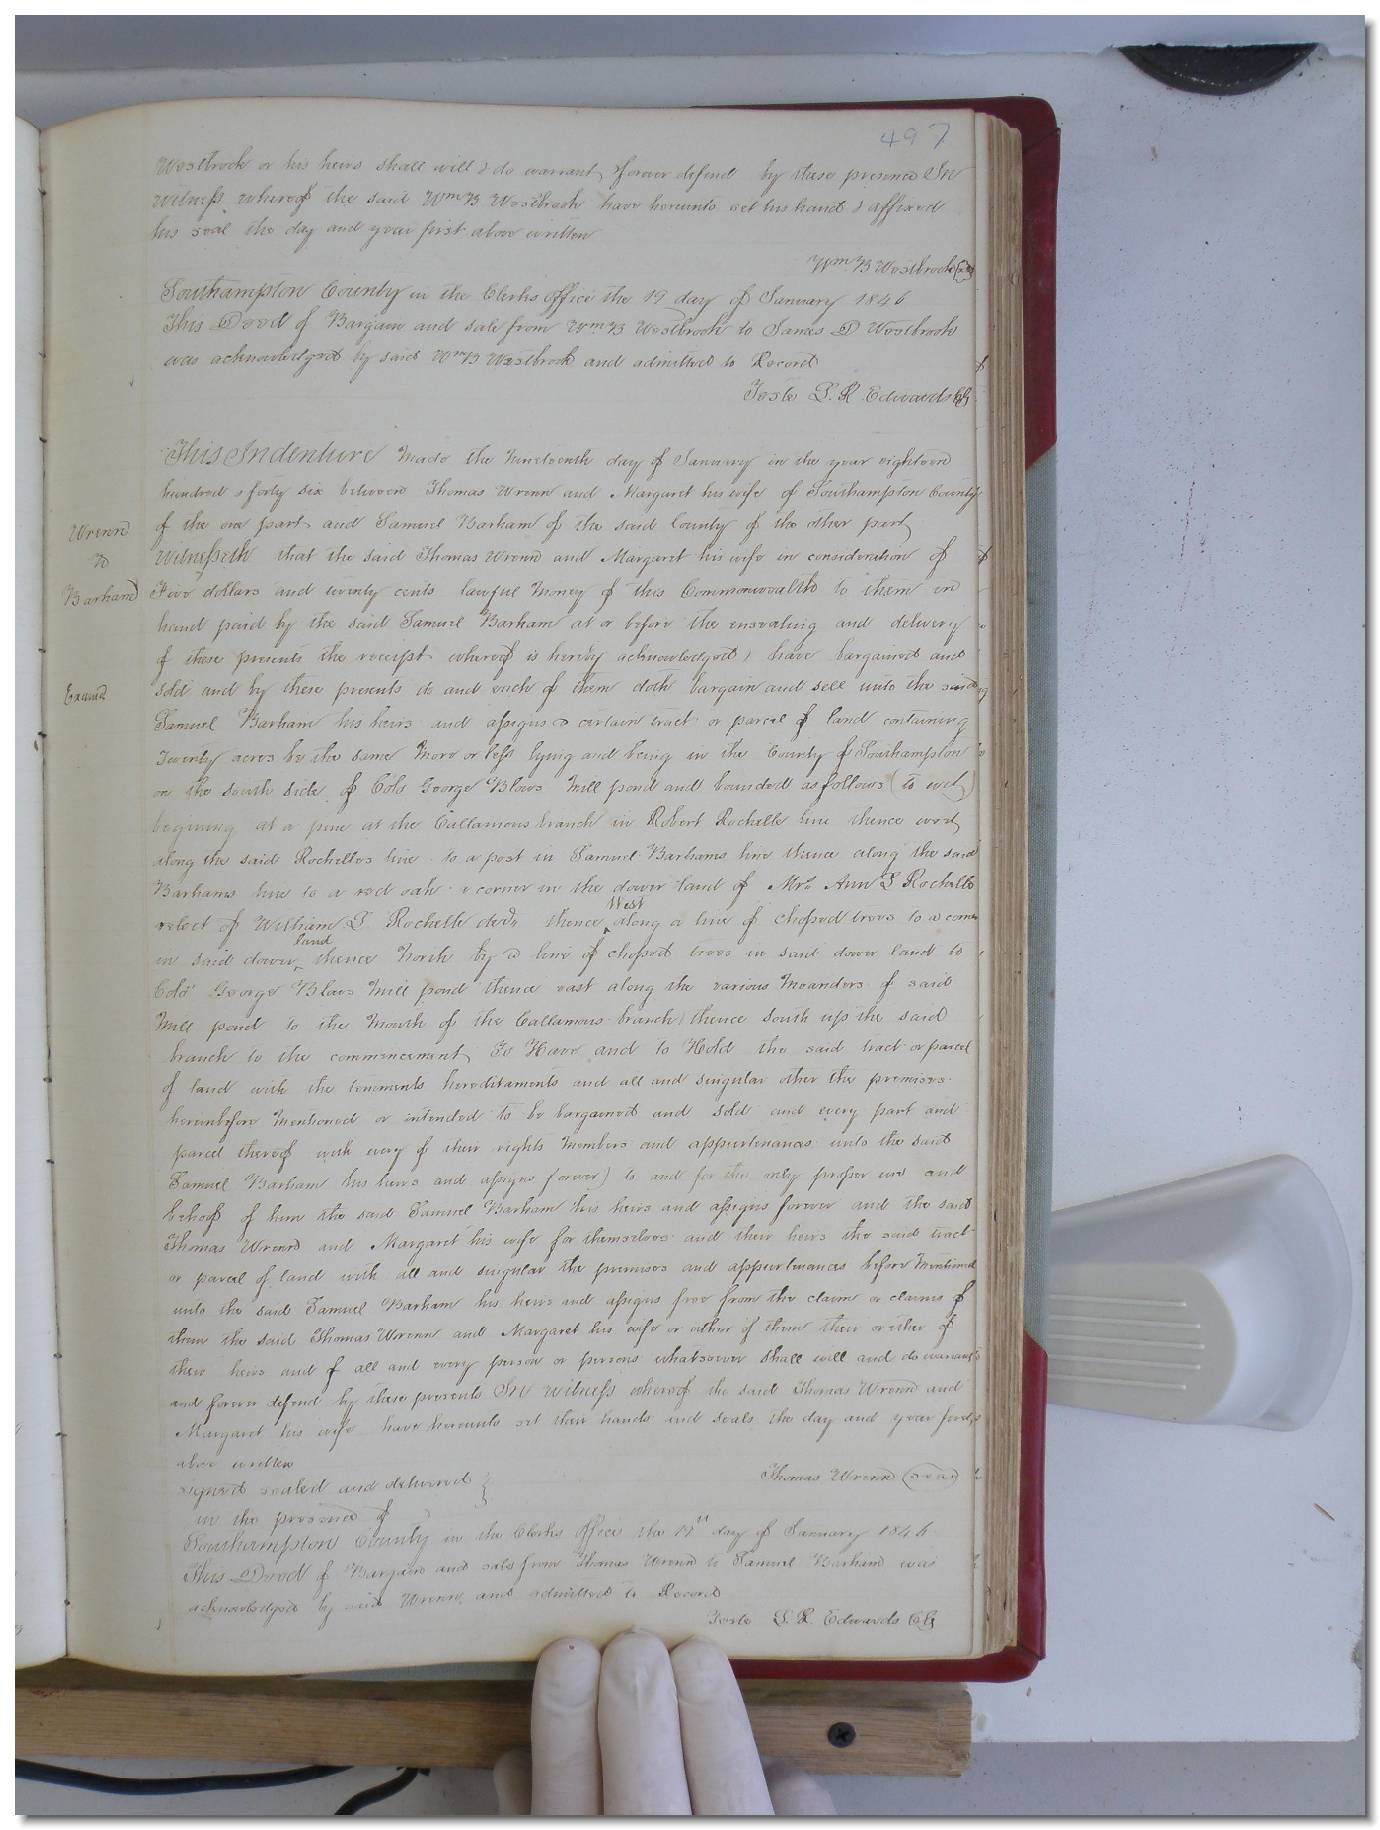 497
Westbrook or his heirs shall will & do warrant & forever defend by these presence In
witness whereof the said Wm B Westbrook have hereunto set his hand & affixed
his seal the day and year first above written
Wm B Westbrook
Southampton County in the Clerks office the 19 day of January 1846
This Deed of Bargain and sale from Wm B Westbrook to James D Westbrook
was acknowledged by said Wm B Westbrook and admitted to Record
Teste L. R. Edwards
This Indenture Made the Nineteenth day of January in the year eighteen
hundred & forty six between Thomas Wrenn and Margaret his wife of Southampton County
Wrenn
to
Barham
of the one part and Samuel Barham of the said County of the other part
Witnesseth that the said Thomas Wrenn and Margaret his wife in consideration of
Five dollars and twenty cents lawful Money of this Commonwealth to them in
hand paid by the said Samuel Barham at or before the ensealing and delivery
of these presents the receipt whereof is hereby acknowledged, have bargained and
Examd
sold and by these presents do and each of them doth bargain and sell unto the said
Samuel Barham his heirs and assigns a certain tract or parcel of land containing
Twenty acres be the same More or less lying and being in the County of Southampton
on the south side of Colo George Blows Mill pond and bounded as follows (to wit)
begining at a pine at the Callamous branch in Robert Rochelle line thence west
along the said Rochelles line to a post in Samuel Barhams line thence along the said
Barhams line to a red oak a corner in the dower land of Mrs Ann L Rochelle
West
relect of William L. Rochelle decd thence along a line of choped trees to a corner
land
in said dower thence North by a line of choped trees in said dower land to
Colo George Blows Mill pond thence east along the various Meanders of said
Mill pond to the Mouth of the Callamous branch, thence South up the said
branch to the commencement To Have and to Hold the said tract or parcel
of land with the tenements hereditaments and all and singular other the premises
hereinbefore Mentioned or intended to be bargained and sold and every part and
parcel thereof with every of their rights Members and appurtenances unto the said
Samuel Barham his heirs and assigns forever, to and for the only proper use and
behoof of him the said Samuel Barham his heirs and assigns forever and the said
Thomas Wrenn and Margaret his wife for themselves and their heirs the said tract
or parcel of land with all and singular the premises and appurtenances before Mentioned
unto the said Samuel Barham his heirs and assigns free from the claim or claims of
them the said Thomas Wrenn and Margaret his wife or either of them their or either of
their heirs and of all and every person or persons whatsoever Shall will and do warrant
and forever defend by these presents In witness whereof the said Thomas Wrenn and
Margaret his wife have hereunto set their hands and seals the day and year first
above written
Thomas Wrenn (seal)
signed sealed and delivered
in the presence of
Southampton County in the Clerks office the 19th day of January 1846
This Deed of Bargain and sale from Thomas Wrenn to Samuel Barham was
acknowledged by said Wrenn and admitted to Record
Teste L. R. Edwards